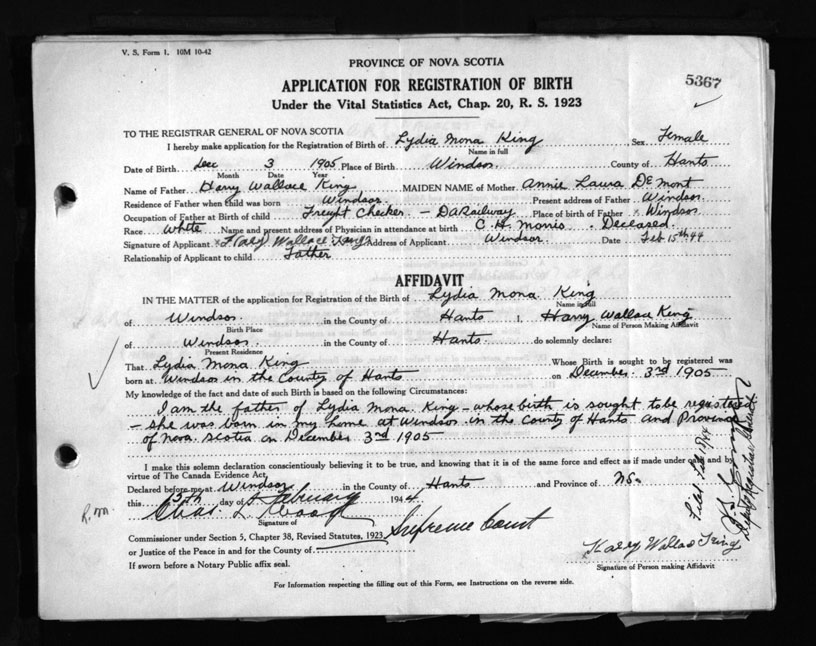 V. S. Form 1. 10M 10-42
PROVINCE OF NOVA SCOTIA
5367
APPLICATION FOR REGISTRATION OF BIRTH
Under the Vital Statistics Act, Chap. 20, R. S. 1923
TO THE REGISTRAR GENERAL OF NOVA SCOTIA
I hereby make application for the Registration of Birth of Lydia Mona King Sex Female
Name in full
Date of Birth Dec 3 1905 Place of Birth Windsor. County of Hants
Month Date Year
Name of Father Harry Wallace King MAIDEN NAME of Mother Annie Laura DeMont
Residence of Father when child was born Windsor. Present address of Father Windsor.
Occupation of Father at Birth of child Freight Checker - D A Railway Place of birth of Father x Windsor
Race White Name and present address of Physician in attendance at birth C. H. Morris. Deceased
Signature of Applicant x Harry Wallace King Address of Applicant Windsor Date Feb 15th 44
Relationship of Applicant to child Father
AFFIDAVIT
IN THE MATTER of the application for Registration of the Birth of Lydia Mona King
Name in full
of Windsor. in the County of Hants I, Harry Wallace King
Birth Place Name of Person Making Affidavit
of Windsor. in the County of Hants. do solemnly declare:
Present Residence
That Lydia Mona King Whose Birth is sought to be registered was
born at Windsor in the County of Hants on December. 3rd 1905
My knowledge of the fact and date of such Birth is based on the following Circumstances:
I am the father of Lydia Mona King - whose birth is sought to be registered
- she was born in my home at Windsor in the County of Hants and Province
of Nova Scotia on December 3rd 1905
I make this solemn declaration conscientiously believing it to be true, and knowing that it is of the same force and effect as if made under oath and by
virtue of The Canada Evidence Act,
Declared before me at Windsor in the County of Hants and Province of NS.
this 15th day of February 1944
R.M.
Signature of
Commissioner under Section 5, Chapter 38, Revised Statutes, 1923 Supreme Court
or Justice of the Peace in and for the County of
Harry Wallace King
If sworn before a Notary Public affix seal.
Signature of Person making Affidavit
For Information respecting the filling out of this Form, see Instructions on the reverse side.
Deputy Registrar General